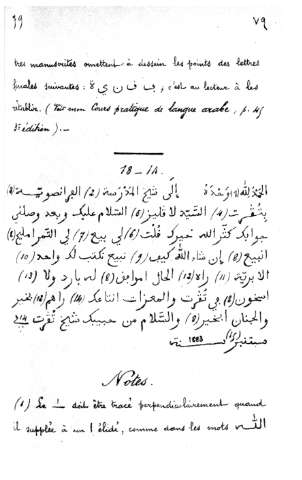 79 ٧٩
tres manuscrites omettent à dessein les points des lettres
finales suivantes : ب ف ن ي ة, c'est au lecteur à les
rétablir. (Voir mon Cours pratique de langue arabe, p. 45
3e édition). —
18 - ١٨
الحمد لله (١) وحده إلى شيخ المدرسة (2) البرانصوية (3)
بتقرت (4) السيد السلام عليك وبعد وصلني
جوابك كثر الله خيرك قلت (6) لي نبيع (7) لي التمر مليح (8)
انبيع (8) إن شاء الله كيف (9) نبيع نكتب لك واحد (10)
(11) راه (12) الحال بارد ولا (13)
اسخون (8) في تقرت والمعزات انتاعك (14) راهم (12) بخير
والجنان ابخير (8) والسلام من حبيبك شيخ تقرت
1883 سنة
Notes.
(1) Le ـٰ doit être tracé perpendiculairement quand
il supplée à un ا élidé, comme dans les mots الله